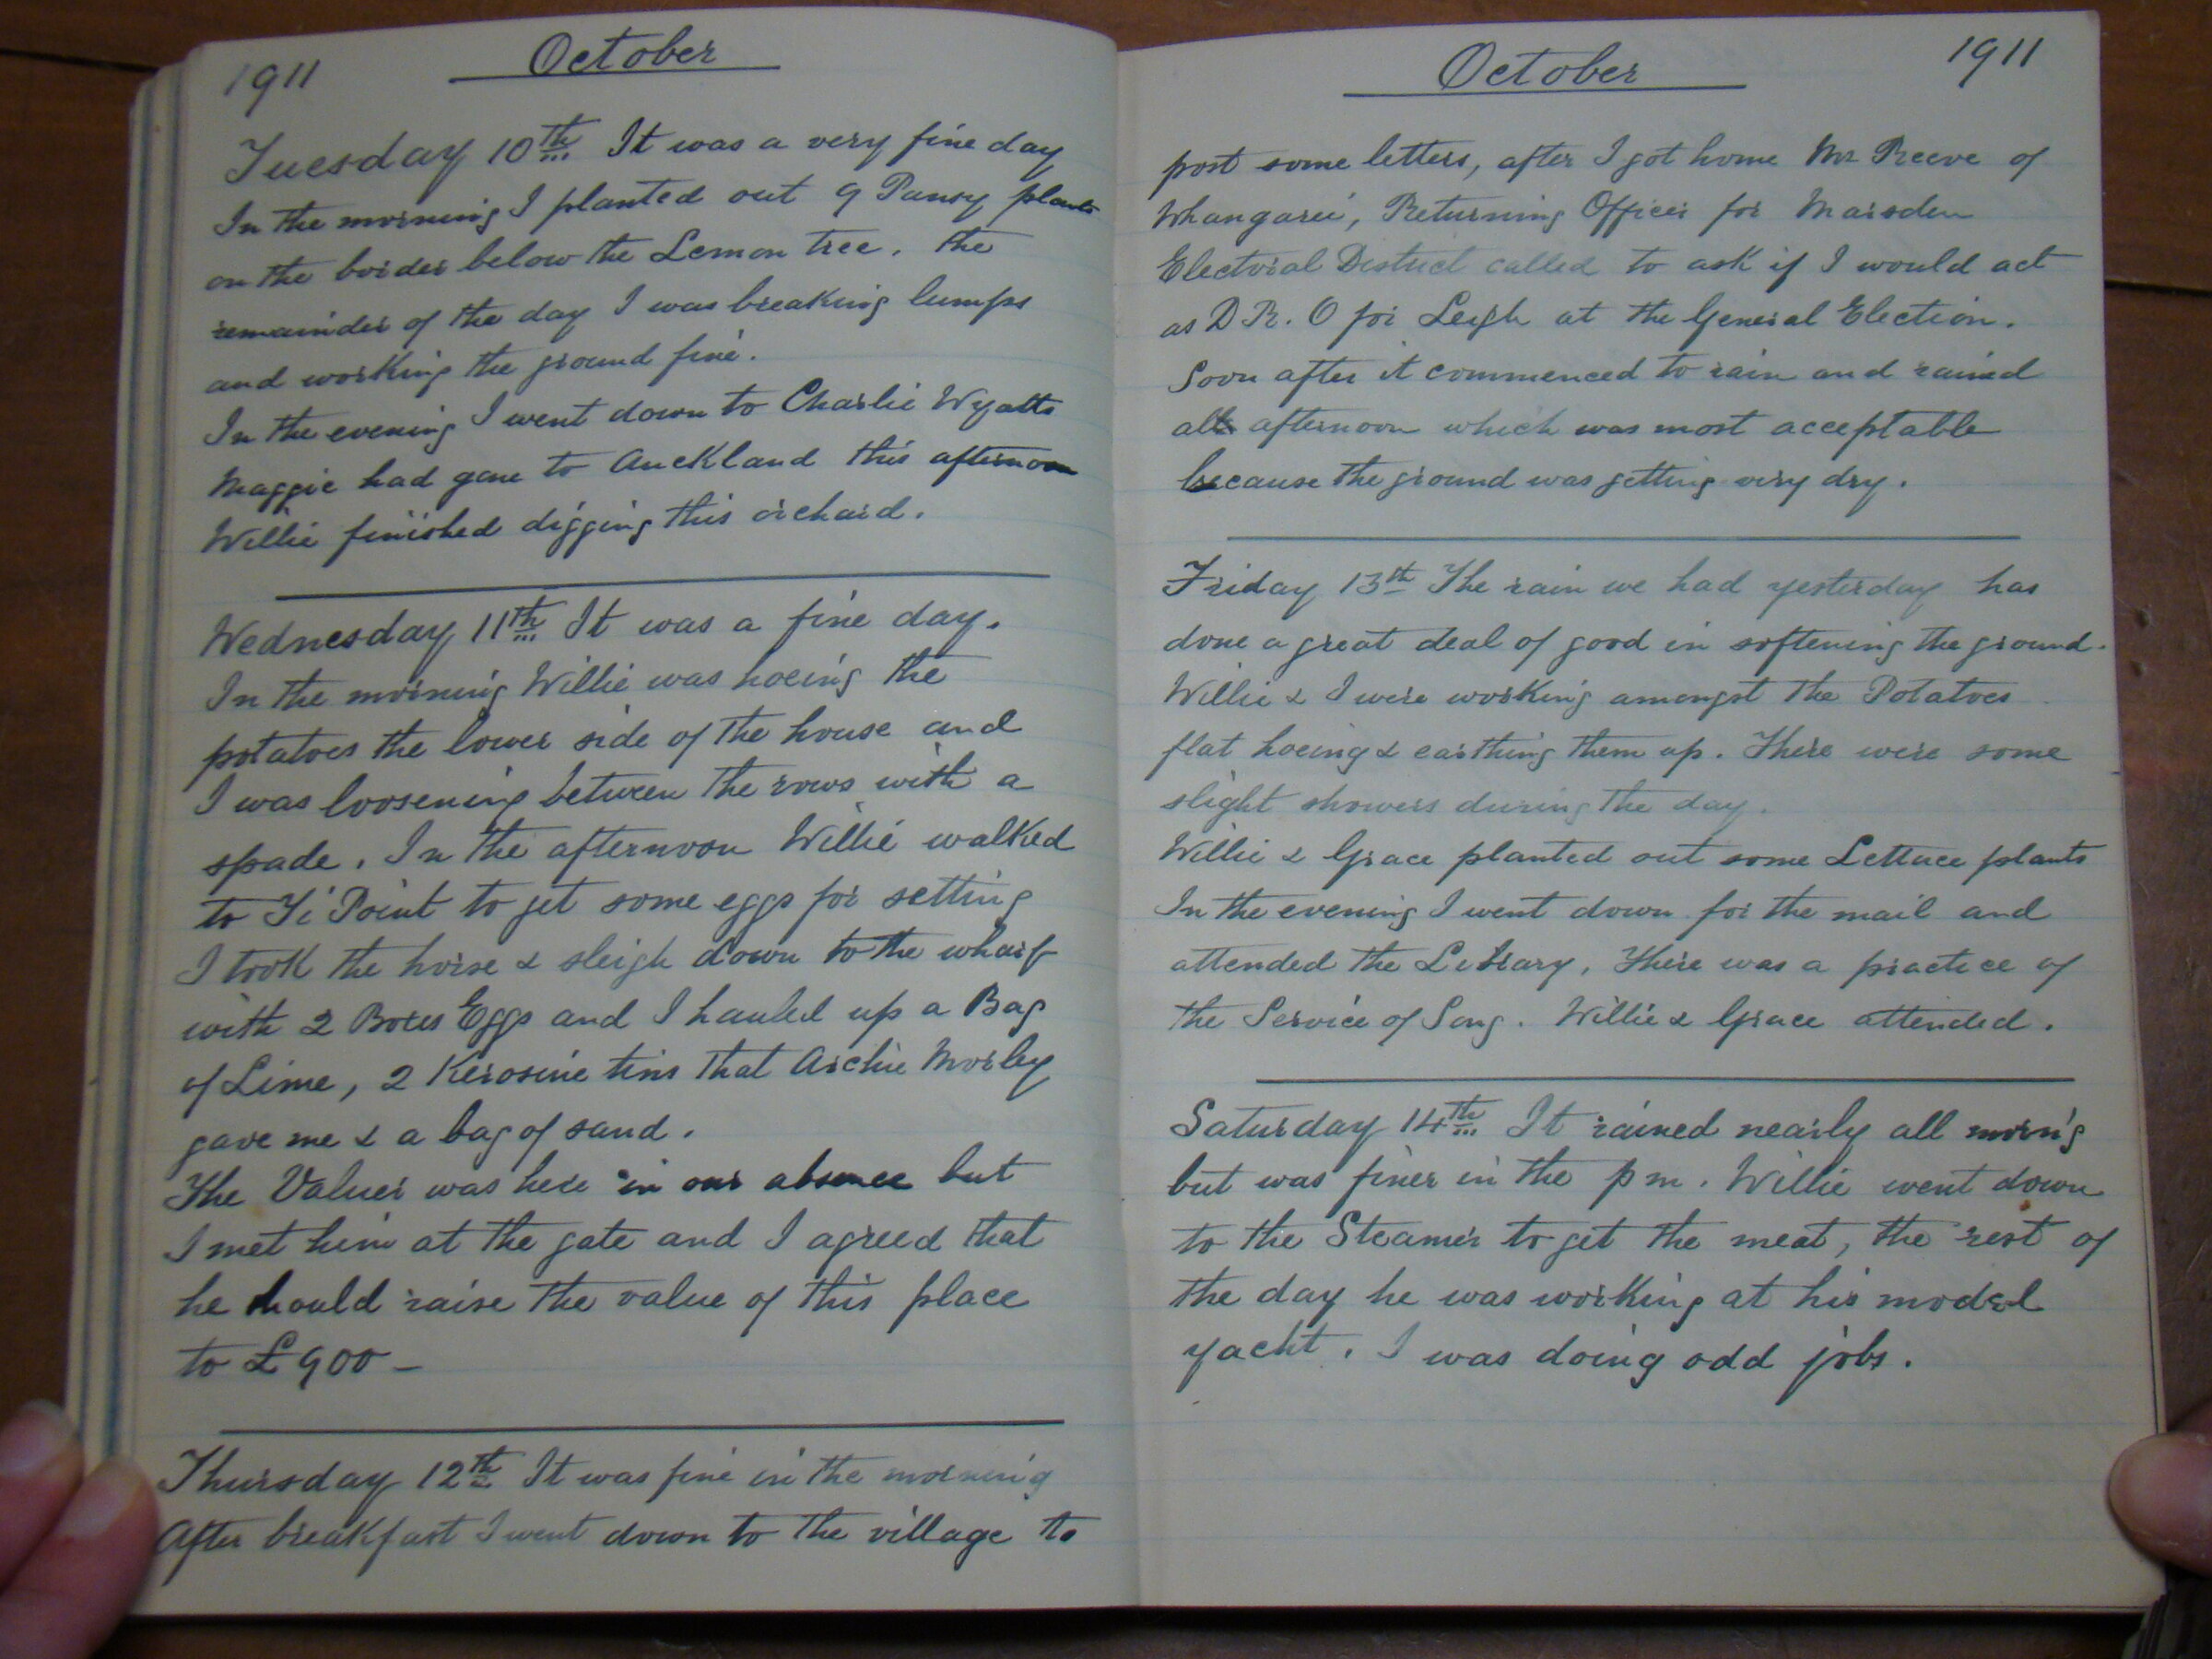 1911
October
Tuesday 10th It was a very fine day
In the morning I planted out 9 Pansy plants
on the border below the Lemon tree. the
remainder of the day I was breaking lumps
and working the ground fine.
In the evening I went down to Charlie Wyatts
Maggie had gone to Auckland this afternoon
Willie finished digging this orchard.
Wednesday 11th It was a fine day.
In the morning Willie was hoeing the
potatoes the lower side of the house and
I was loosening between the rows with a
spade. In the afternoon Willie walked
to Ti Point to get some eggs for setting
I took the horse & sleigh down to the wharf
with 2 Boxes Eggs and I hauled up a Bag
of Lime, 2 Kerosine tins that Archie Morley
gave me & a bag of sand.
The Valuer was here in our absence but
I met him at the gate and I agreed that
he should raise the value of this place
to £900-
Thursday 12th It was fine in the morning
After breakfast I went down to the village to
October
1911
post some letters, after I got home Mr Reeve of
Whangarei, Returning Officer for Marsden
Electoral District called to ask if I would act
as D R. O for Leigh at the General Election.
Soon after it commenced to rain and rained
all afternoon which was most acceptable
because the ground was getting very dry.
Friday 13th The rain we had yesterday has
done a great deal of good in softening the ground.
Willie & I were working amongst the Potatoes
flat hoeing & earthing them up. There were some
slight showers during the day.
Willie & Grace planted out some Lettuce plants
In the evening I went down for the mail and
attended the Library. There was a practice of
the Service of Song. Willie & Grace attended.
Saturday 14th It rained nearly all morn'g
but was finer in the pm. Willie went down
to the Steamer to get the meat, the rest of
the day he was working at his model
yacht. I was doing odd jobs.